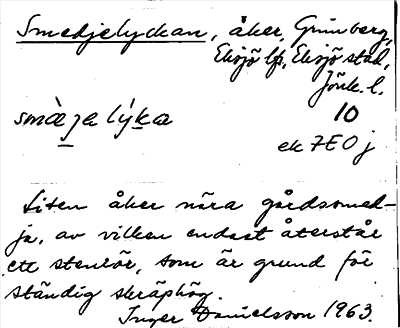 Smedjelyckan, åker, Grünberg,
Eksjö lfs, Eksjö stad,
Jönk. l.
smæ̀ja lýka 10
ek 7E0j
Liten åker nära gårdssmed-
ja, av vilken endast återstår
ett stenrör, som är grund för
ständig skräphög.
Inger Danielsson 1963.